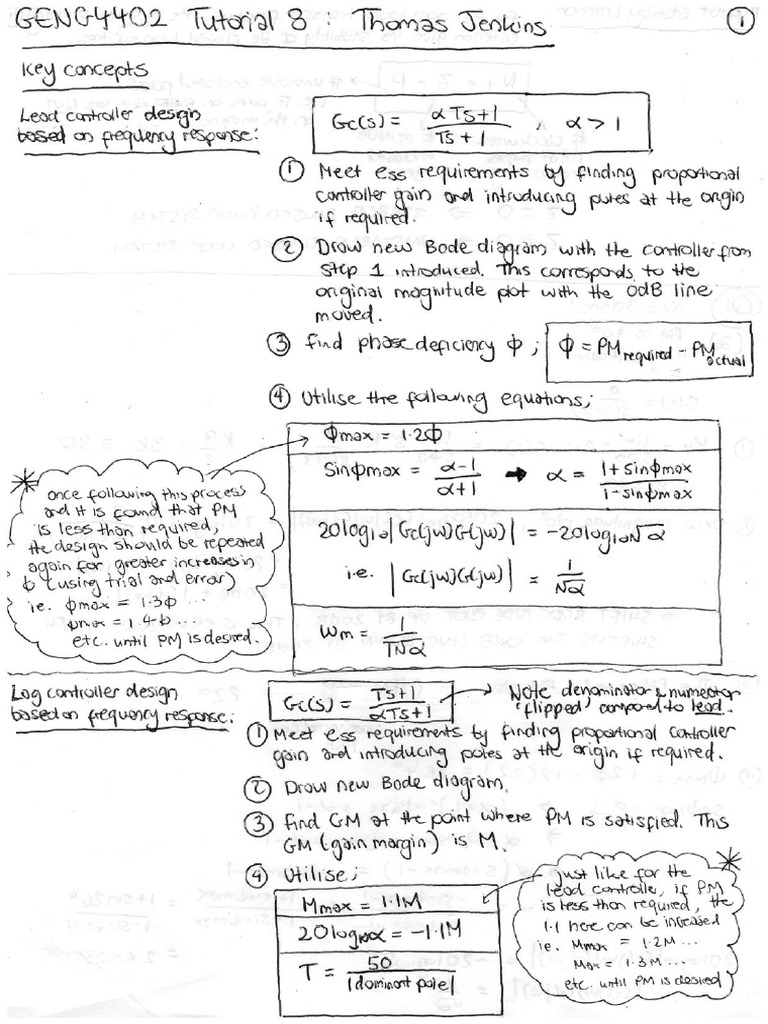 GENG4402 Tutorial 8: Thomas Jenkins
1
Key concepts
Lead controller design
based on frequency response:
Gc(s) = αTs+1 / Ts+1 , α > 1
① Meet ess requirements by finding proportional
controller gain and introducing poles at the origin
if required.
② Draw new Bode diagram with the controller from
step 1 introduced. This corresponds to the
original magnitude plot with the 0dB line
moved.
③ find phase deficiency φ ; φ = PM required - PM actual
④ Utilise the following equations;
φmax = 1.2φ
Sinφmax = α-1 / α+1 → α = 1+sinφmax / 1-sinφmax
20log10|Gc(jw)G(jw)| = -20log10√α
i.e. |Gc(jw)G(jw)| = 1/√α
Wm = 1/T√α
once following this process
and it is found that PM
is less than required,
the design should be repeated
again for greater increases in
φ (using trial and error)
i.e. φmax = 1.3φ ...
φmax = 1.4φ
etc. until PM is desired.
Lag controller design
based on frequency response:
Gc(s) = Ts+1 / αTs+1
Note denominator & numerator
'flipped' compared to lead.
① Meet ess requirements by finding proportional controller
gain and introducing poles at the origin if required.
② Draw new Bode diagram.
③ find GM at the point where PM is satisfied. This
GM (gain margin) is M.
④ Utilise;
Mmax = 1.1M
20log10α = -1.1M
T = 50 / |dominant pole|
just like for the
lead controller, if PM
is less than required, the
1.1 here can be increased
i.e. Mmax = 1.2M ...
Max = 1.3M ...
etc. until PM is desired